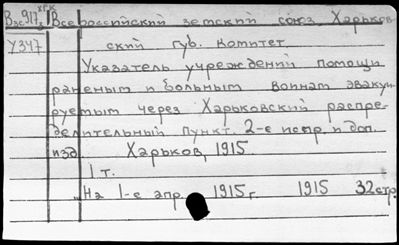 В№917.2 ХГК Всероссийский земский союз. Харьков
У347 ский губ. комитет
Указатель учреждений помощи
раненым и больным воинам эваку
руемым через Харьковский распре-
делительный пункт. 2-е испр. и доп.
изд. Харьков, 1915
1 т.
На 1-е апр. 1915 г. 1915 32 стр.